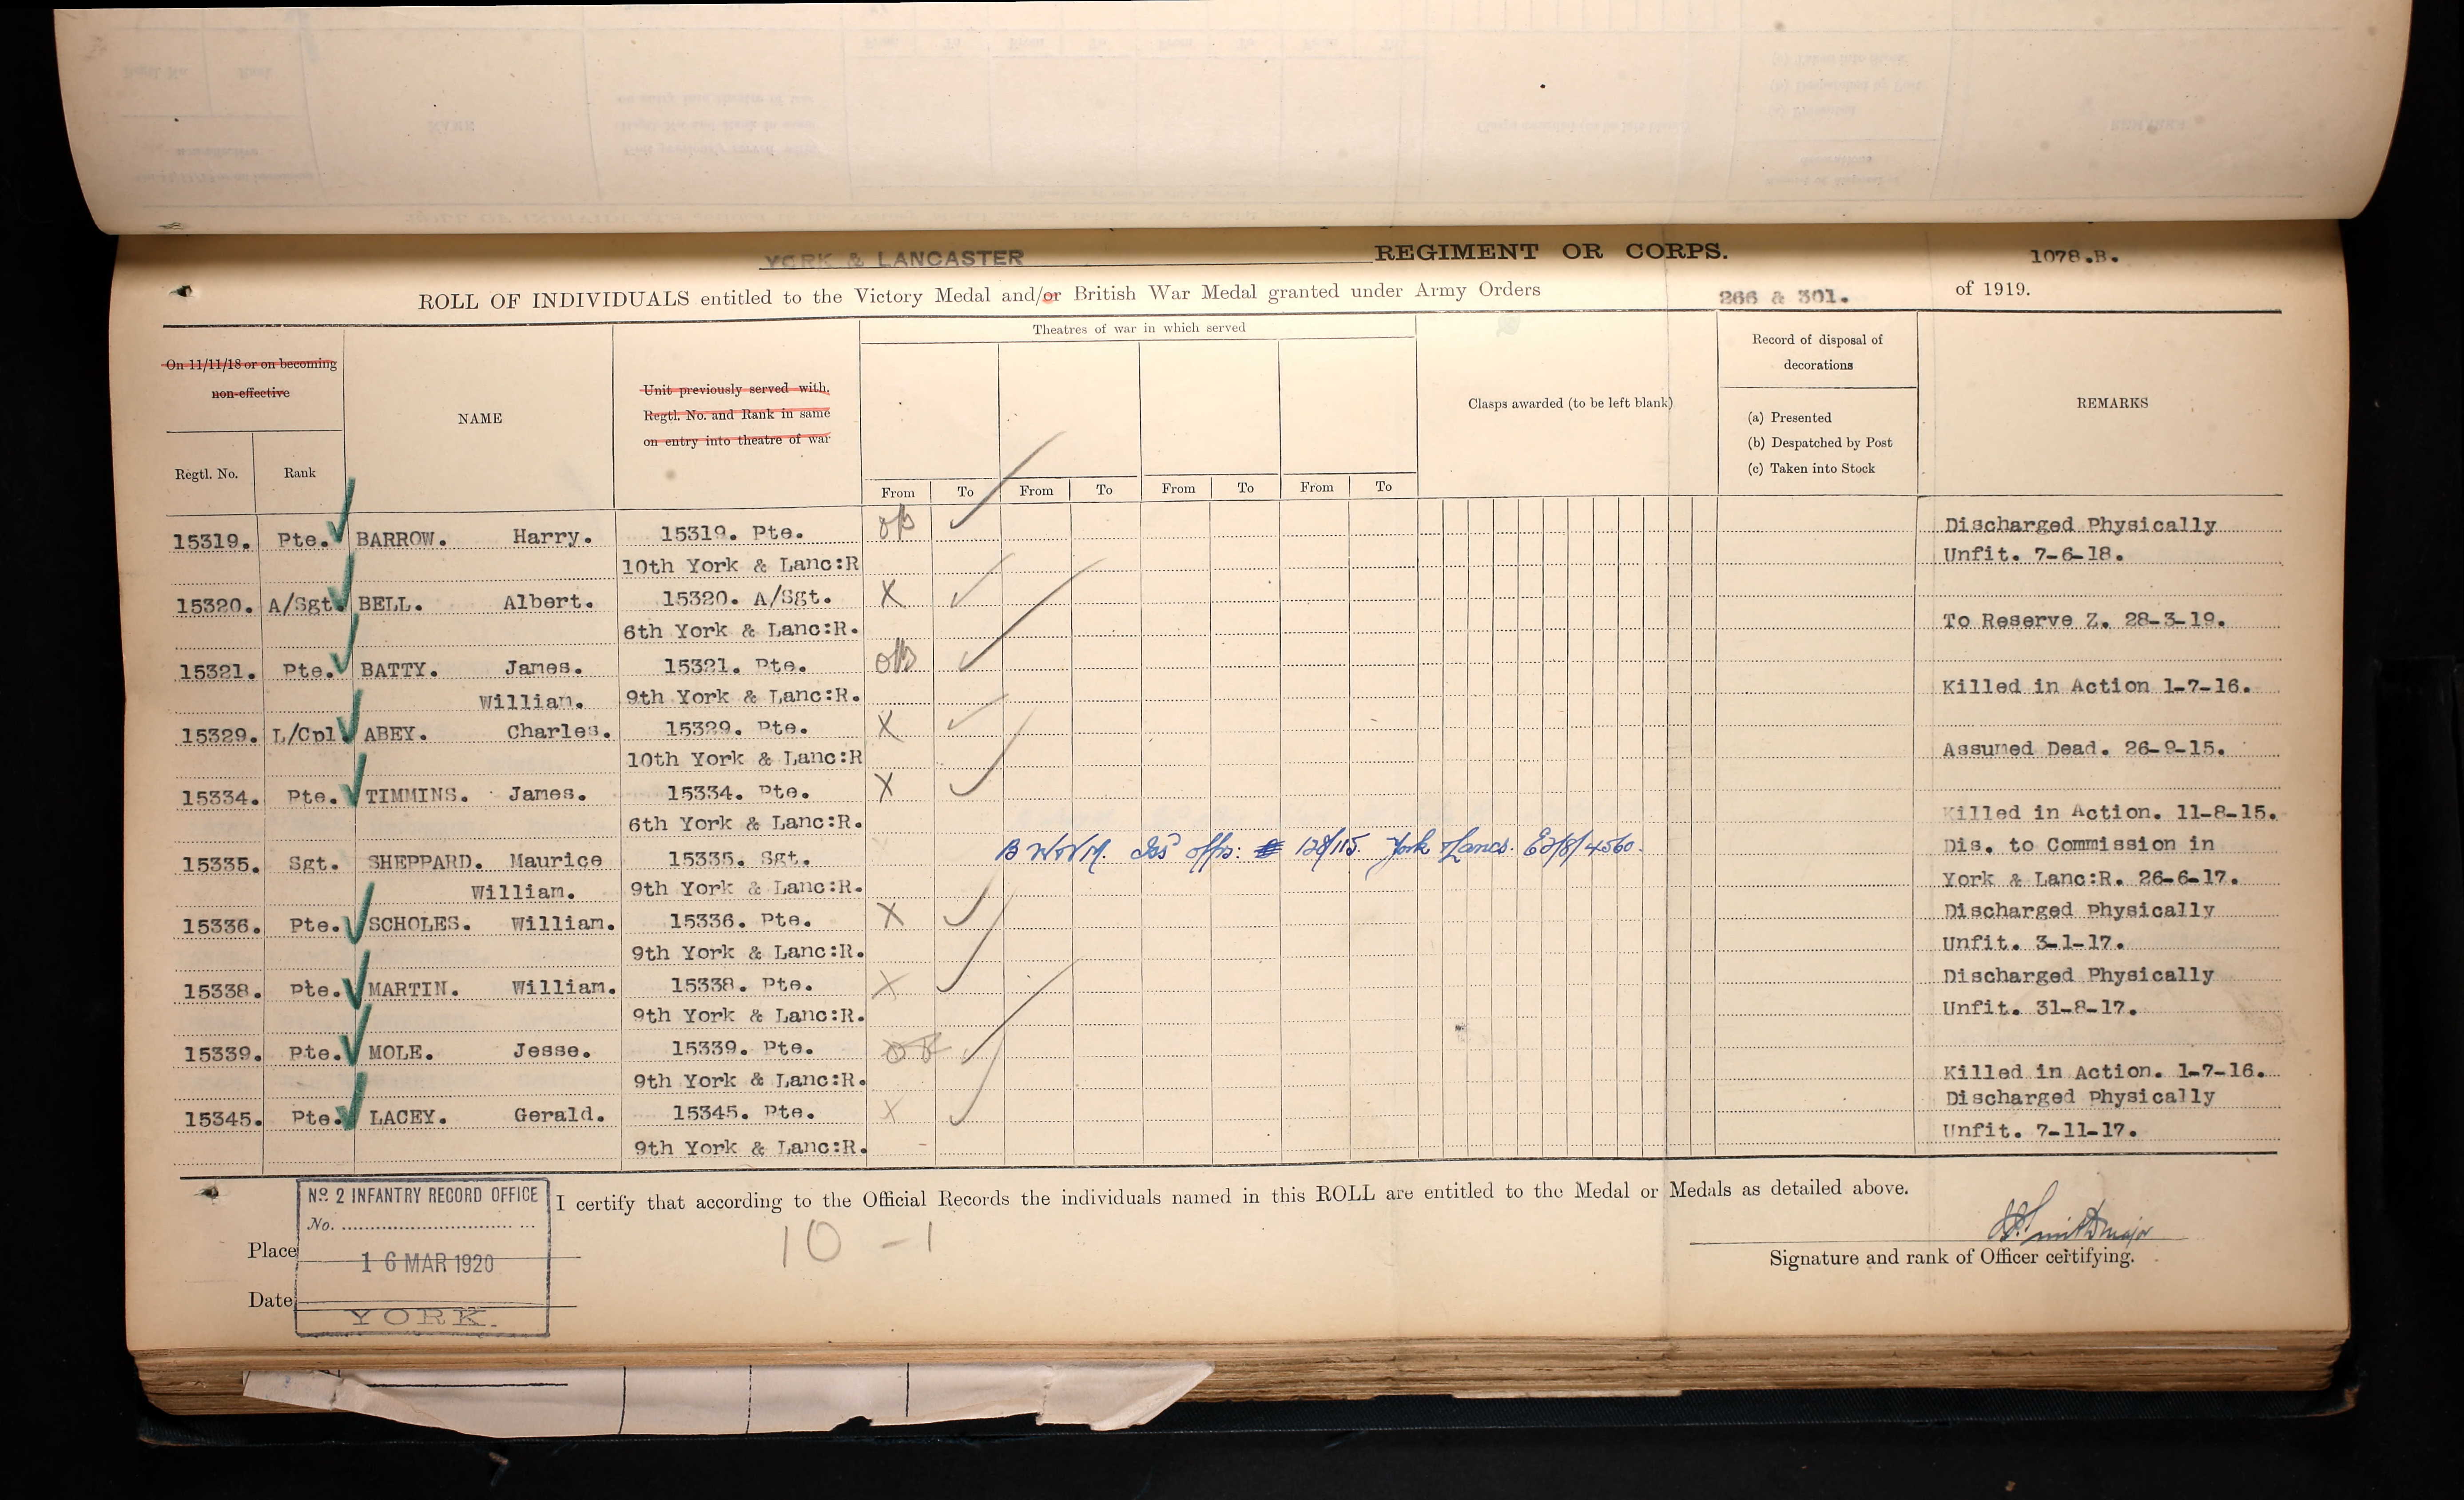 YORK & LANCASTER REGIMENT OR CORPS. 1078.B.
ROLL OF INDIVIDUALS entitled to the Victory Medal and/or British War Medal granted under Army Orders 266 & 301. of 1919.
Theatres of war in which served
On 11/11/18 or on becoming
non-effective
Regtl. No. Rank
NAME
Unit previously served with.
Regtl. No. and Rank in same
on entry into theatre of war
From To From To From To From To
Clasps awarded (to be left blank)
Record of disposal of
decorations
(a) Presented
(b) Despatched by Post
(c) Taken into Stock
REMARKS
15319. Pte. BARROW. Harry. 15319. Pte. Discharged Physically
10th York & Lanc:R Unfit. 7-6-18.
15320. A/Sgt. BELL. Albert. 15320. A/Sgt. X
6th York & Lanc:R. To Reserve Z. 28-3-19.
15321. Pte. BATTY. James. 15321. Pte.
Willian. 9th York & Lanc:R. Killed in Action 1-7-16.
15329. L/Cpl. ABEY. Charles. 15329. Pte. X
10th York & Lanc:R Assumed Dead. 26-9-15.
15334. Pte. TIMMINS. James. 15334. Pte. X
6th York & Lanc:R. Killed in Action. 11-8-15.
15335. Sgt. SHEPPARD. Maurice 15335. Sgt. B W & V M. Iss offrs: 128/115. York & Lancs. E2/8/4560. Dis. to Commission in
William. 9th York & Lanc:R. York & Lanc:R. 26-6-17.
15336. Pte. SCHOLES. William. 15336. Pte. X Discharged Physically
9th York & Lanc:R. Unfit. 3-1-17.
15338. Pte. MARTIN. William. 15338. Pte. X Discharged Physically
9th York & Lanc:R. Unfit. 31-8-17.
15339. Pte. MOLE. Jesse. 15339. Pte.
9th York & Lanc:R. Killed in Action. 1-7-16.
15345. Pte. LACEY. Gerald. 15345. Pte. X Discharged Physically
9th York & Lanc:R. Unfit. 7-11-17.
I certify that according to the Official Records the individuals named in this ROLL are entitled to the Medal or Medals as detailed above.
No. 2 INFANTRY RECORD OFFICE
No.
Place
16 MAR 1920
Date
YORK.
10 - 1
Smith Major
Signature and rank of Officer certifying.